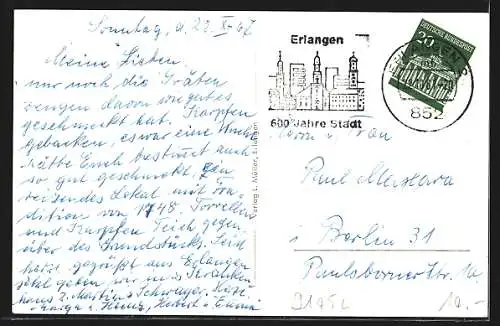 Sonntag, d. 22. X. 67
Meine Lieben.
nur noch die Gräten
zeugen davon wie gut es
geschmeckt hat. Karpfen
gebacken, es war eine Wucht
hätte Euch bestimmt auch
so gut geschmeckt. Ein
reizendes Lokal mit Tra-
dition von 1748. Forellen
und Karpfen Teich gegen
über des Grundstücks. Seid
herzl. gegrüßt aus Erlangen
jetzt gehen wir ins Kranken
haus z. Martin's Schwieger
Heinz, Herbert u. Emmi
Verlag L. Müller, Erlangen
Erlangen
600 Jahre Stadt
20
DEUTSCHE BUNDESPOST
ERLANGEN
852
Herrn u. Frau
Paul
1 Berlin 31
Paulsborner Str. 10
10.-